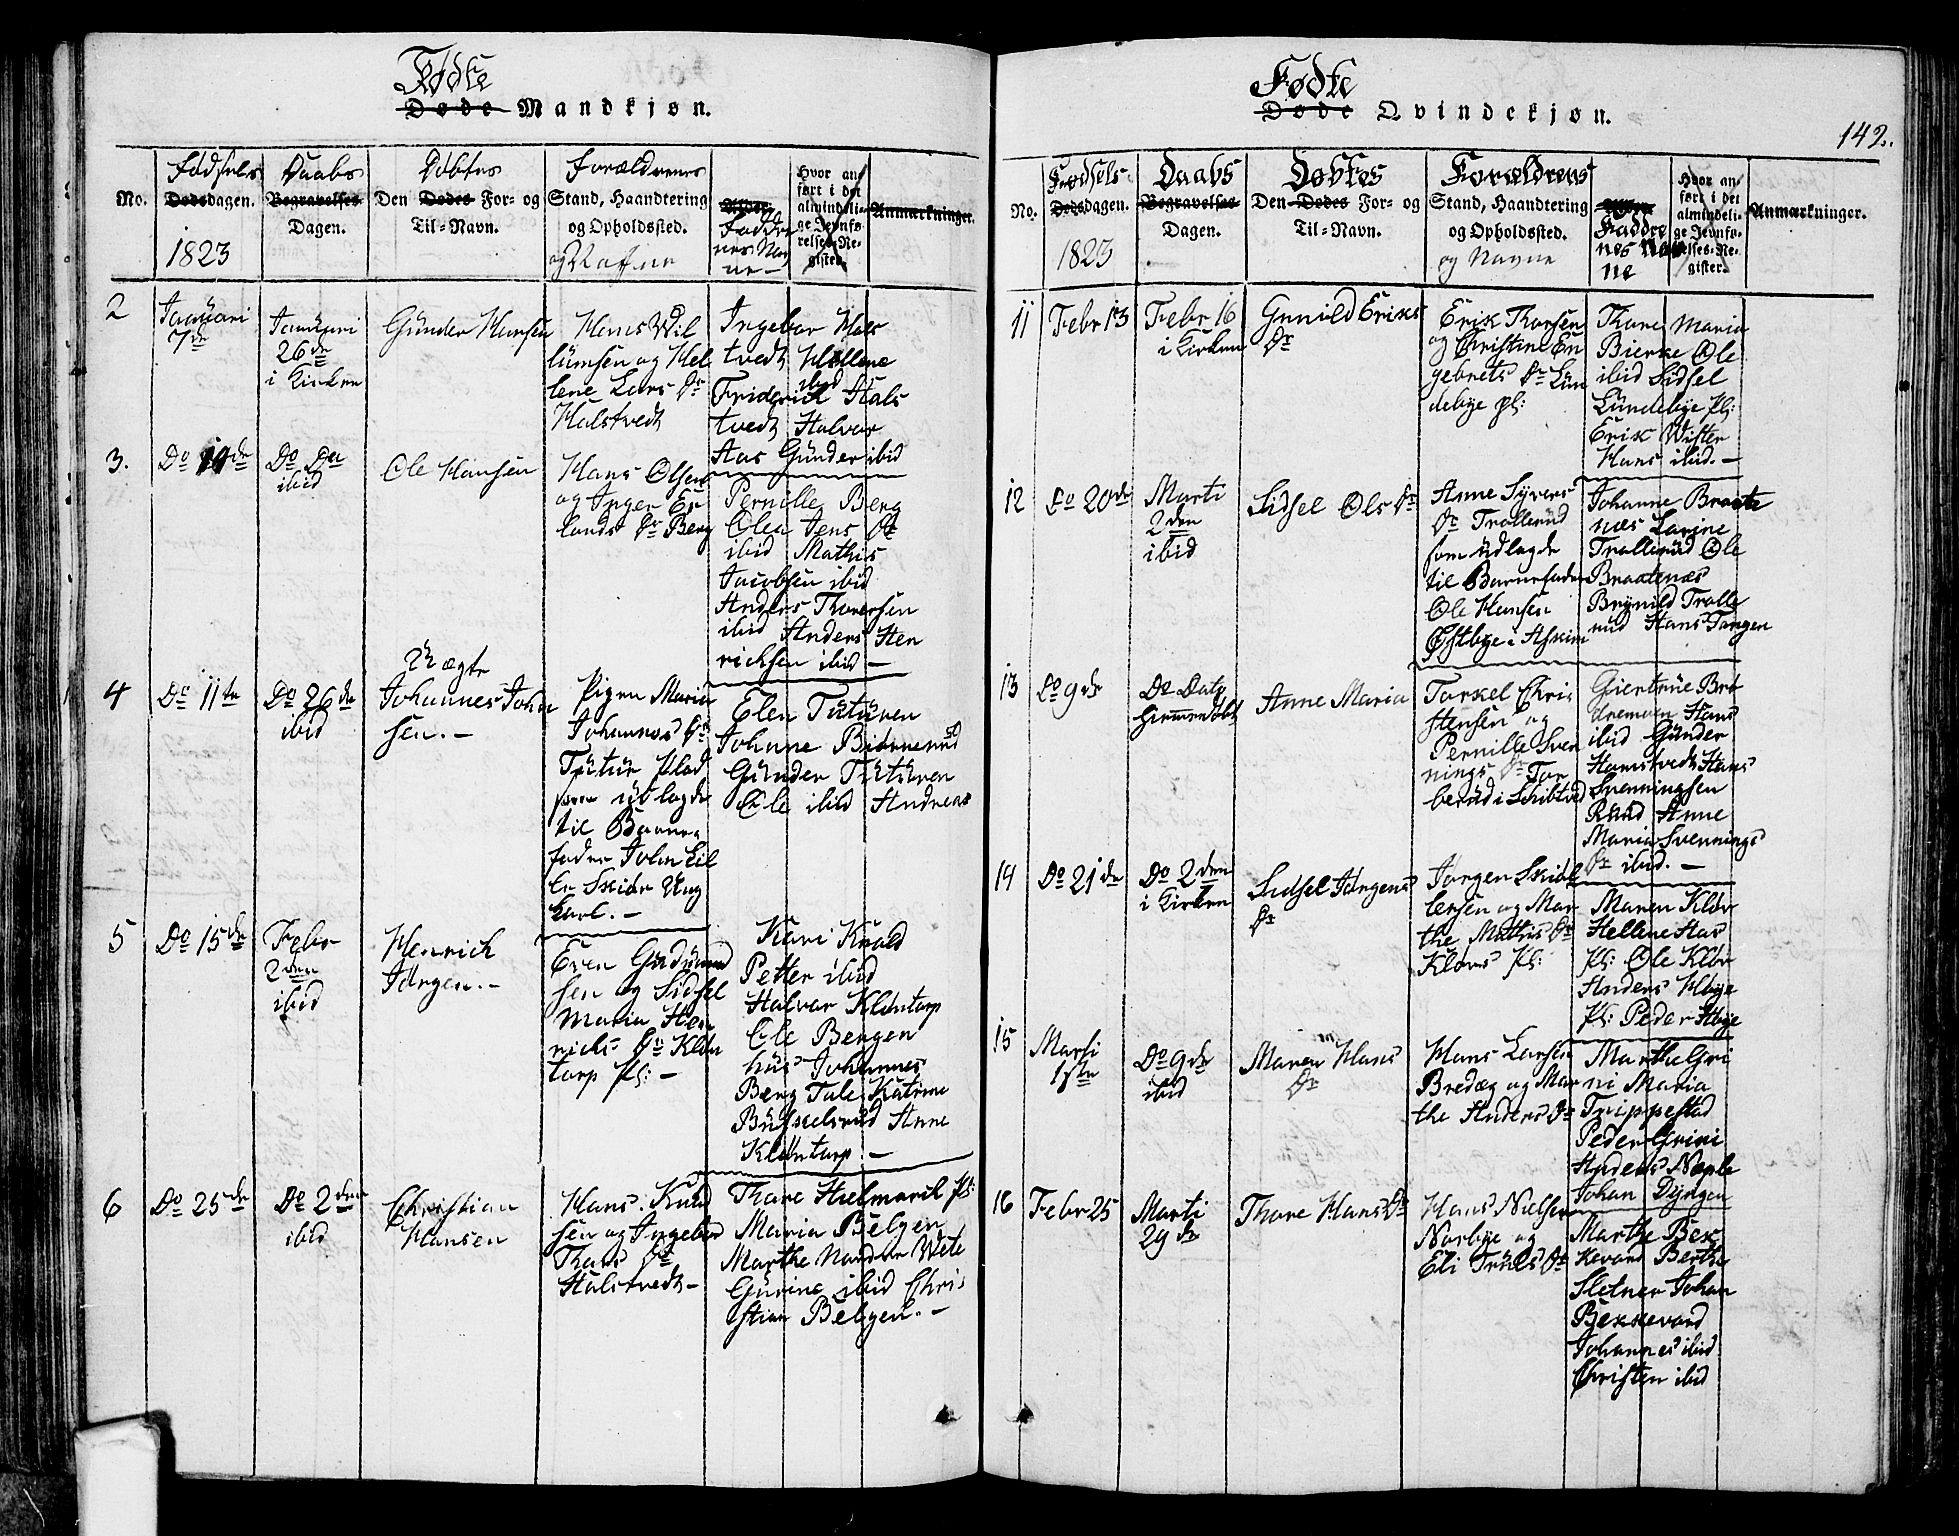 Fødte
Døde Mandkjøn.
No.
Fødsels
Dødsdagen.
1823
Daabs
Begravelses
Dagen.
Døbtes
Den Dødes For- og
Til-Navn.
Forældrenes
Stand, Haandtering
og Opholdssted.
og Nafne
Alder
Faddre
nes Nav
ne
Hvor an-
ført i det
almindeli-
ge Jevnfø-
relses-Re-
gister.
Anmærkninger.
2
Januari
7de
Januari
26de
i Kirken
Günder Hansen
Hans Wil
lümsen og Hel
lene Lars Dr
Halstvedt
Ingebor Hals
tvedt Hellene
ibid
Friderich Hals
tvedt Halvor
Aas Günder ibid
3.
Do 10de
Do Do
ibid
Ole Hansen
Hans Olsen
og Inger Er
lands Dr Berg
Pernille Berg
Olea Jens Dr
ibid Mathis
Jacobsen ibid
Anders Thoresen
ibid Anders Hen
richsen ibid —
4
Do 11te
Do 26de
ibid
Uægte
Johannes John
sen. —
Pigen Maria
Johannes Dr
Tütür Plad
som udlagde
til Barne
fader John Eil
er Skier Ung
karl. —
Elen Tütüren
Johanne Biörnerüd
Günder Tütüren
Ole ibid Andreas
5
Do 15de
Febr
2den
ibid
Henrich
Jörgen. —
Even Gudmund
sen og Sidsel
Maria Hen
richs Dr Klön
torp pl: —
Kari Knold
Petter ibid
Halvor Klöntorp
Ole Bergen
hüs Johannes
Berg Tale Katrine
Büskelsrud Anne
Klöntorp. —
6
Do 25de
Do 2den
ibid
Christian
Hansen
Hans Knud
sen og Ingebor
Thors Dr
Halstvedt —
Thore Hielmark pl:
Maria Bélgen
Marthe Nordre Wete
Gurine ibid Chris
stian Bélgen. —
Fødte
Døde Qvindekjøn.
142.
No.
Fødsels
Dødsdagen.
1823
Daabs
Begravelses
Dagen.
Døbtes
Den Dødes For- og
Til-Navn.
Forældrens
Stand, Haandtering
og Opholdssted.
og Navne
Faddre
nes Nav
ne
Hvor an-
ført i det
almindeli-
ge Jevnfø-
relses-Re-
gister.
Anmærkninger.
11
Febr 13
Febr 16
i Kirken
Gunild Eriks
Dr
Erik Thorsen
og Christine En
gebrets Dr Lün
debye pl:
Thore Maria
Bierke Ole
ibid Sidsel
Lündebye pl:
Erik Wister
Hans ibid. —
12
Do 20de
Marti
2den
ibid
Sidsel Ols Dr
Anne Syvers
Dr Trollerüd
som udlagde
til Barnefader
Ole Hansen
Østbye i Askim
Johanne Braate
næs Karine
Trollerüd Ole
Braatenæs
Brynild Trolle
rüd Hans Tangen
13
Do 9de
Do Dato
hiemmedöbt
Anne Maria
Torkel Chris
stensen og
Pernille Sven
nings Dr Tor
berüd i Schibtved
Giertrüe Brö
dremoen Hans
ibid Günder
Hamstvedt Hans
Svenningsen
Rüud Anne
Maria Svennings
Dr ibid. —
14
Do 21de
Do 2den
i Kirken
Sidsel Jörgens
Dr
Jörgen Skibl
lersen og Mar
the Mathis Dr
Klövs pl:
Maren Klöv
Hellene Aas
pl: Ole Klöv
Anders Höye
pl: Peder Höye
15
Marti
1ste
Do 9de
ibid
Maren Hans
Dr
Hans Larsen
Bredæg og Mar
the Anders Dr
Marthe Gri
ni Maria
Trippestad
Peder Grini
Anders Næble
Johan Dyngen
16
Febr 25
Marti
29de
Thore Hans Dr
Hans Nielsen
Norbye og
Eli Trüls Dr
Marthe Bek
kevard Berthe
Sletner Johan
Bekkevard
Johannes ibid
Christen ibid